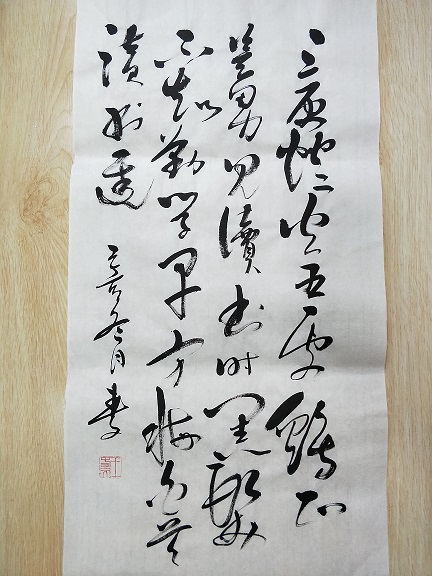 三更燈火五更鷄正
是男兒讀書時黑髮
不知勤學早方悔白首
讀書遲
冬月